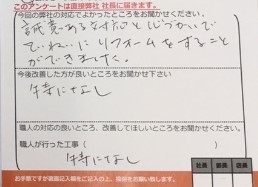 このアンケートは直接弊社 社長に届きます。
今回の弊社の対応でよかったところをお聞かせください。
誠意ある対応と
ていねいにリフォームをすること
ができました。
今後改善した方が良いところをお聞かせ下さい
特になし
職人の対応の良いところ、改善してほしいところをお聞かせください。
職人が行った工事(
特になし
お手数ですが裏面記入欄をご記入の上、投函をお願い致します。
社長